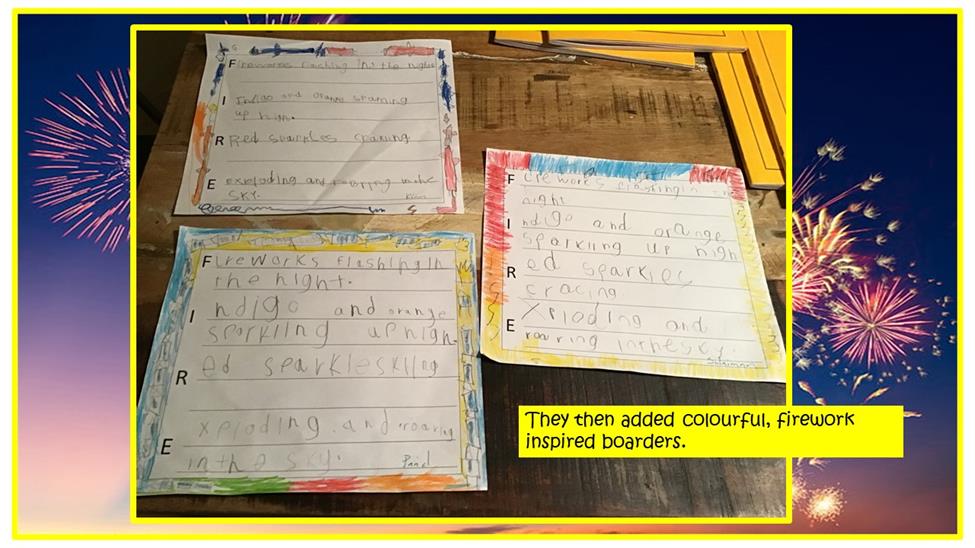 F Fireworks flaching in the night
I Indigo and orange
up high.
R Red sparkles
E exploding and roaring in the
SKY.
F ireworks flashing in
the night.
I ndigo and orange
sparkling up high.
R ed sparkles
E xploding and roaring
in the sky.
F ireworks flashing in
night
I ndigo and orange
sparkling up high
R ed sparkles
cracing
E Xploding and
roaring in the sky.
They then added colourful, firework
inspired boarders.